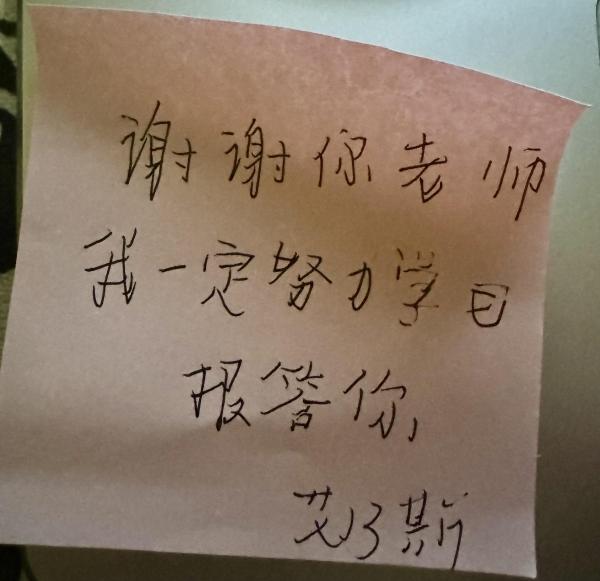 谢谢你老师
我一定努力学日
报答你
艾乃斯